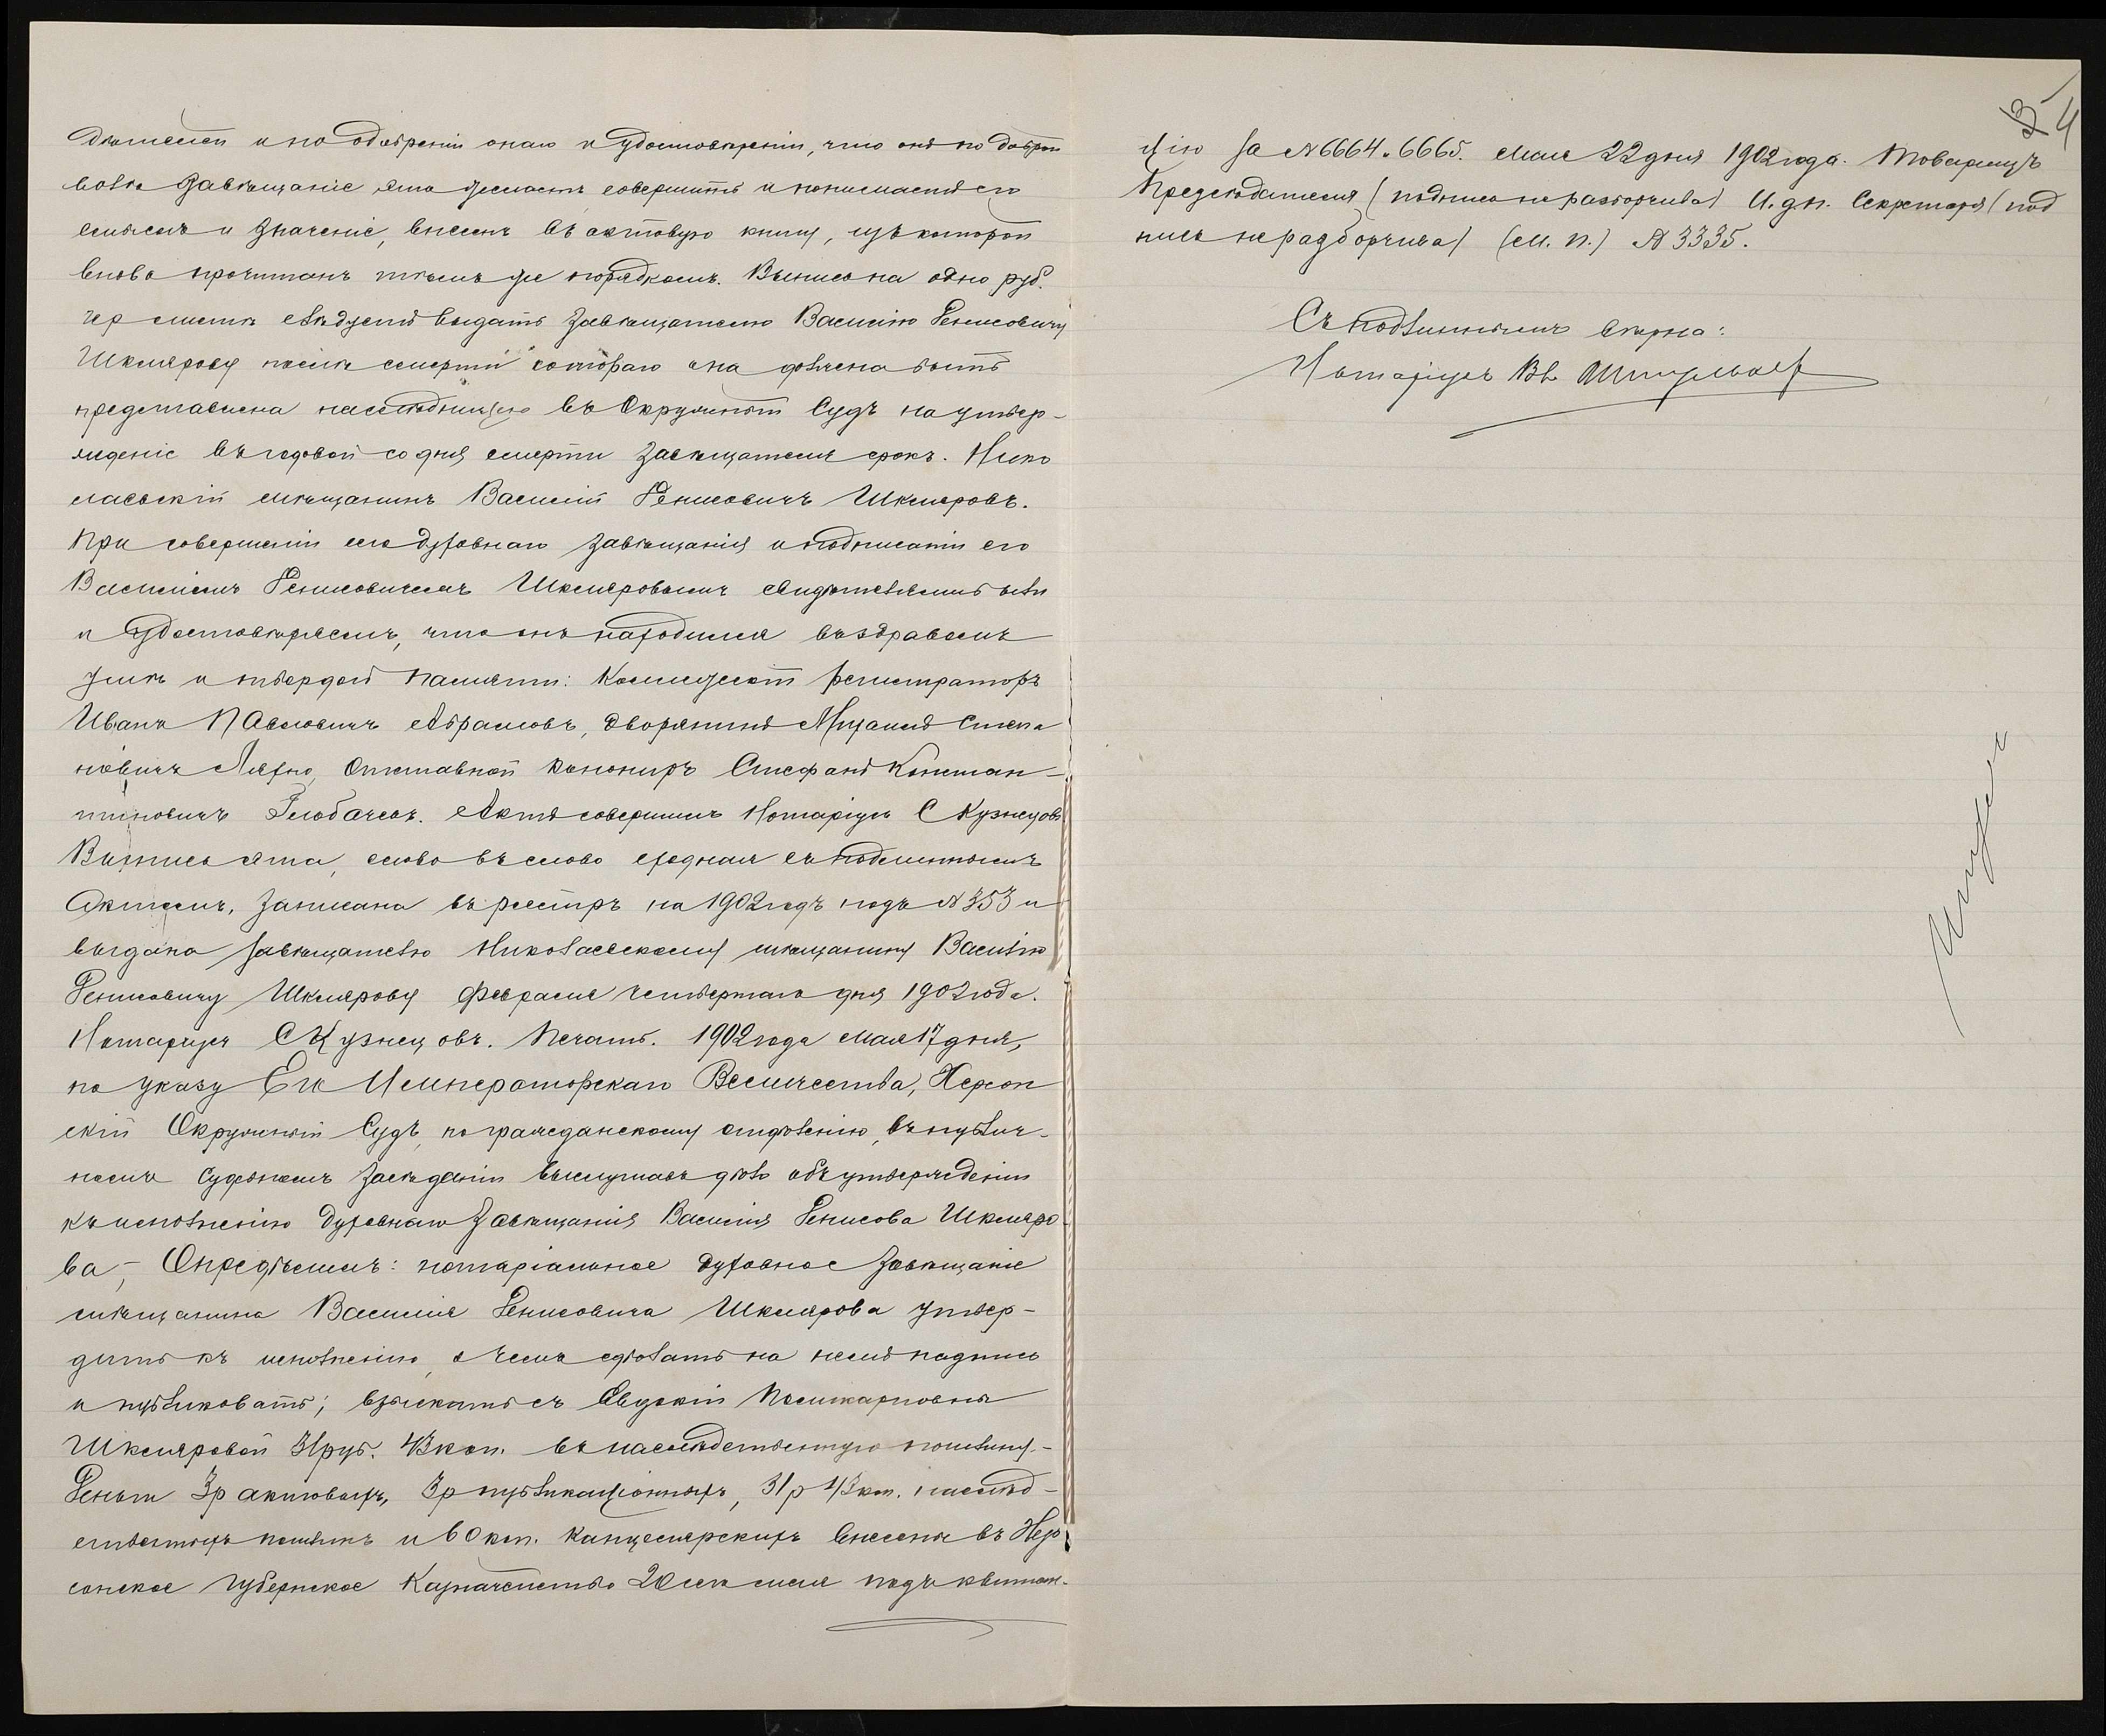 дѣтелей и по одобреніи онаго и удостовѣреніи, что онъ по доброй
волѣ завѣщаніе это желаетъ совершить и понимаетъ его
смыслъ и значеніе, внесенъ въ актовую книгу, изъ которой
вновь прочитанъ тѣмъ же порядкомъ. Выпись на одно руб.
гер листѣ слѣдуетъ выдать завѣщателю Василію Денисовичу
Шклярову послѣ смерти котораго она должна быть
представлена наслѣдницею въ Окружный Судъ на утвер-
жденіе въ годовой со дня смерти завѣщателя срокъ. Нико
лаевскій мѣщанинъ Василій Денисовичъ Шкляровъ.
При совершеніи сего духовнаго завѣщанія и подписаніи его
Василіемъ Денисовичемъ Шкляровымъ свидѣтелями были
и удостовѣряемъ, что онъ находился въ здравомъ
умѣ и твердой памяти: Коллежскій регистраторъ
Иванъ Павловичъ Абрамовъ, дворянинъ Михаилъ Степа
новичъ Ляхно, Отставной канониръ Стефанъ Констан-
тиновичъ Глобачев. Актъ совершилъ Нотаріусъ С Кузнецовъ
Выпись эта, слово въ слово сходная съ подлиннымъ
актомъ, записана въ реестръ на 1902 годъ подъ № 353 и
выдана завѣщателю Николаевскому мѣщанину Василію
Денисовичу Шклярову февраля четвертаго дня 1902 года.
Нотаріусъ С Кузнецовъ. Печать. 1902 года Мая 17 дня,
по указу Его Императорскаго Величества, Херсон
скій Окружный Судъ, по гражданскому отдѣленію, въ публич-
номъ судебномъ засѣданіи выслушавъ дѣло объ утвержденіи
къ исполненію духовнаго завѣщанія Василія Денисова Шкляро-
ва,- Опредѣлилъ: нотаріальное духовное завѣщаніе
мѣщанина Василія Денисовича Шклярова утвер-
дить къ исполненію, о чемъ сдѣлать на немъ надпись
и публиковать; взыскать съ Евдокіи Поликарповны
Шкляровой 31 руб. 43 коп. въ наслѣдственную пошлину.-
Деньги 3 р актовыхъ, 3 р публикаціонныхъ, 31 р 43 коп. наслѣд-
ственныхъ пошлинъ и 60 коп. канцелярскихъ внесены въ Хер
сонское Губернское Казначейство 20 сего мая подъ квитан-
4
цію за № 6664 и 6665. Мая 22 дня 1902 года. Товарищъ
Предсѣдателя (подпись неразборчива) И. д. п. Секретаря (под
пись неразборчива) (М. П.) № 3335.
Съ подлиннымъ вѣрно:
Нотаріусъ Вл